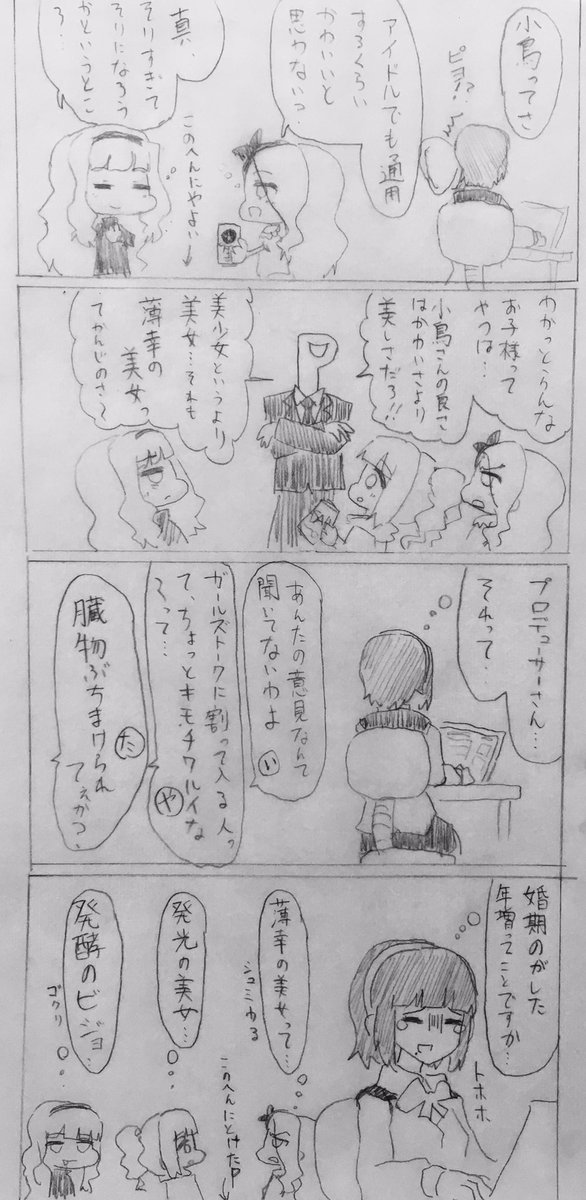 小鳥ってさ
ピヨ!?
アイドルでも通用
するくらい
かわいいと
思わないっ
真、
そりすぎて
そりになろう
かというとこ
ろ…
このへんにやよい→
わかっとらんな
お子様って
やつは…
小鳥さんの良さ
はかわいさより
美しさだろ!!
美少女というより
美女…それも
薄幸の
美女っ
てかんじのさ～
プロデューサーさん…
それって…
あんたの意見なんて
聞いてないわよ
い
ガールズトークに割って入る人っ
て、ちょっとキモチワルイな
って…
や
臓物ぶちまけられ
てぇがっ、
た
婚期のがした
年増ってことですか…
トホホ
薄幸の美女って…
ショミゆる
発光の美女…
このへんにとけたP→
発酵のビジョ…
ゴクリ